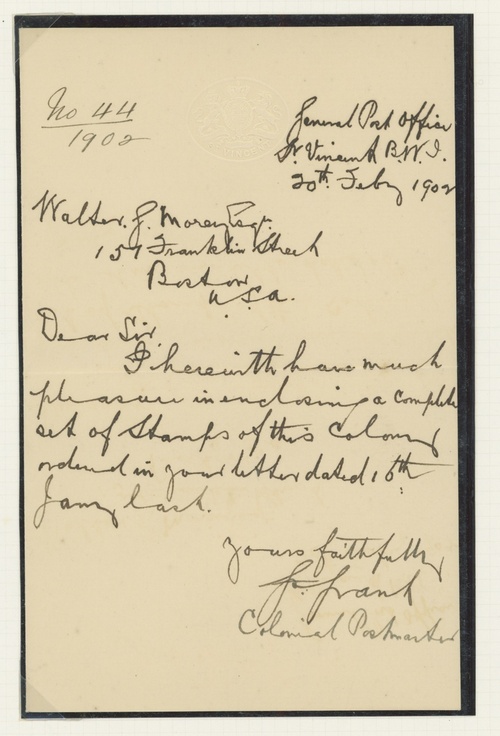 No 44
1902
General Post Office
St. Vincent B.W.I.
20th Feby 1902
Walter. J. Morey Esqr.
157 Franklin Street
Boston
U.S.A.
Dear Sir.
I herewith have much
pleasure in enclosing a complete
set of Stamps of this Colony
ordered in your letter dated 16th
Jany last.
Yours faithfully
Colonial Postmaster